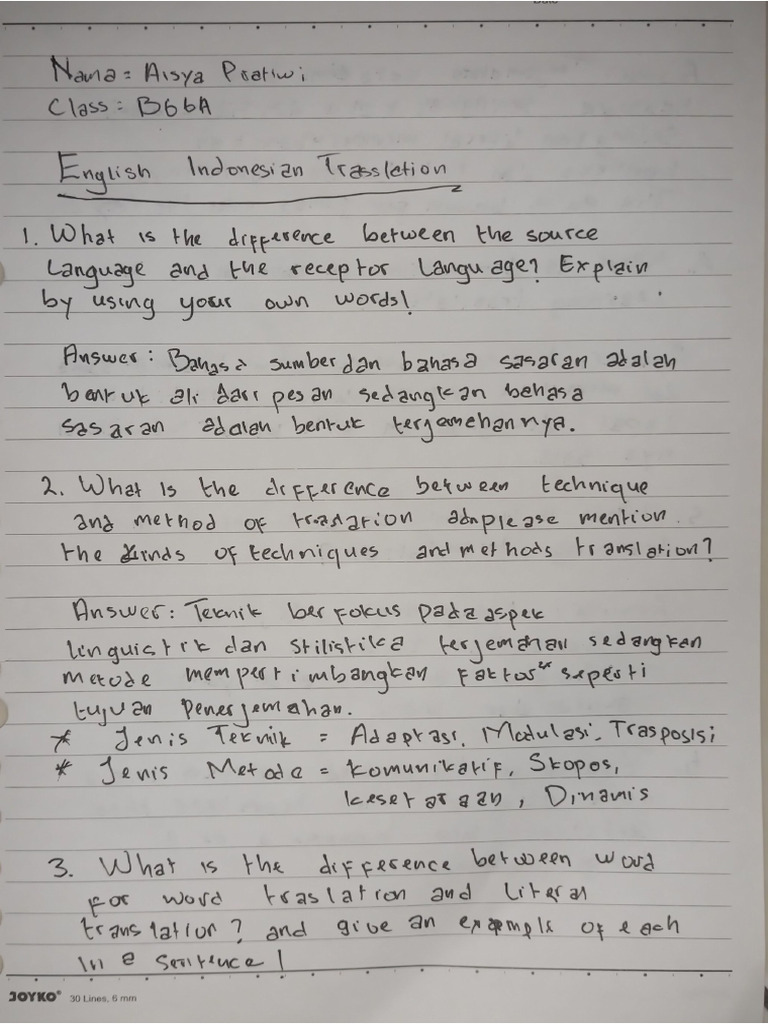 Nama = Aisya Pratiwi
Class : B66A
English Indonesian Trassletion
1. What is the difference between the source
Language and the receptor Language? Explain
by using your own words!
Answer : Bahasa sumber dan bahasa sasaran adalah
bentuk ali dari pesan sedangkan behasa
sasaran adalah bentuk terjemehannya.
2. What Is the difference between technique
and method of traslation adnplease mention
the kinds of techniques and methods translation?
Answer : Teknik berfokus pada aspek
linguistik dan stilistika terjemahan sedangken
metode mempertimbangkan faktor" seperti
tujuan Penerjemahan.
* Jenis Teknik = Adaptasi, Modulasi, Trasposisi
* Jenis Metode = Komunikatif, Skopos,
kesetaraan, Dinamis
3. What is the difference between word
for word traslation and Literal
translation? and give an example of each
In a sentence!
JOYKO® 30 Lines, 6 mm